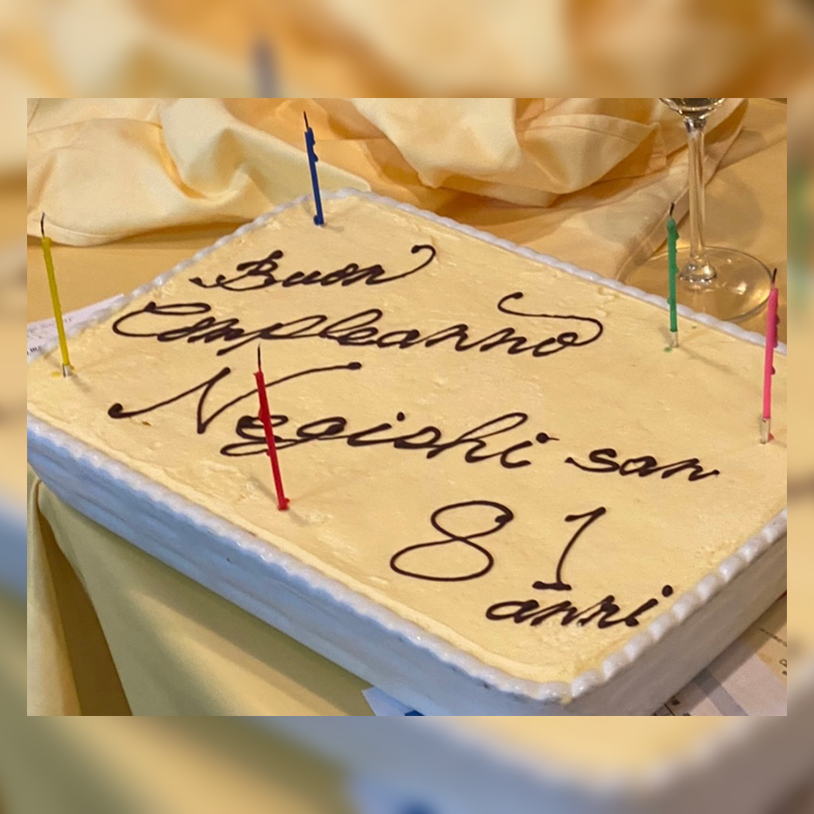 Buon
Compleanno
Negishi san
81
anni